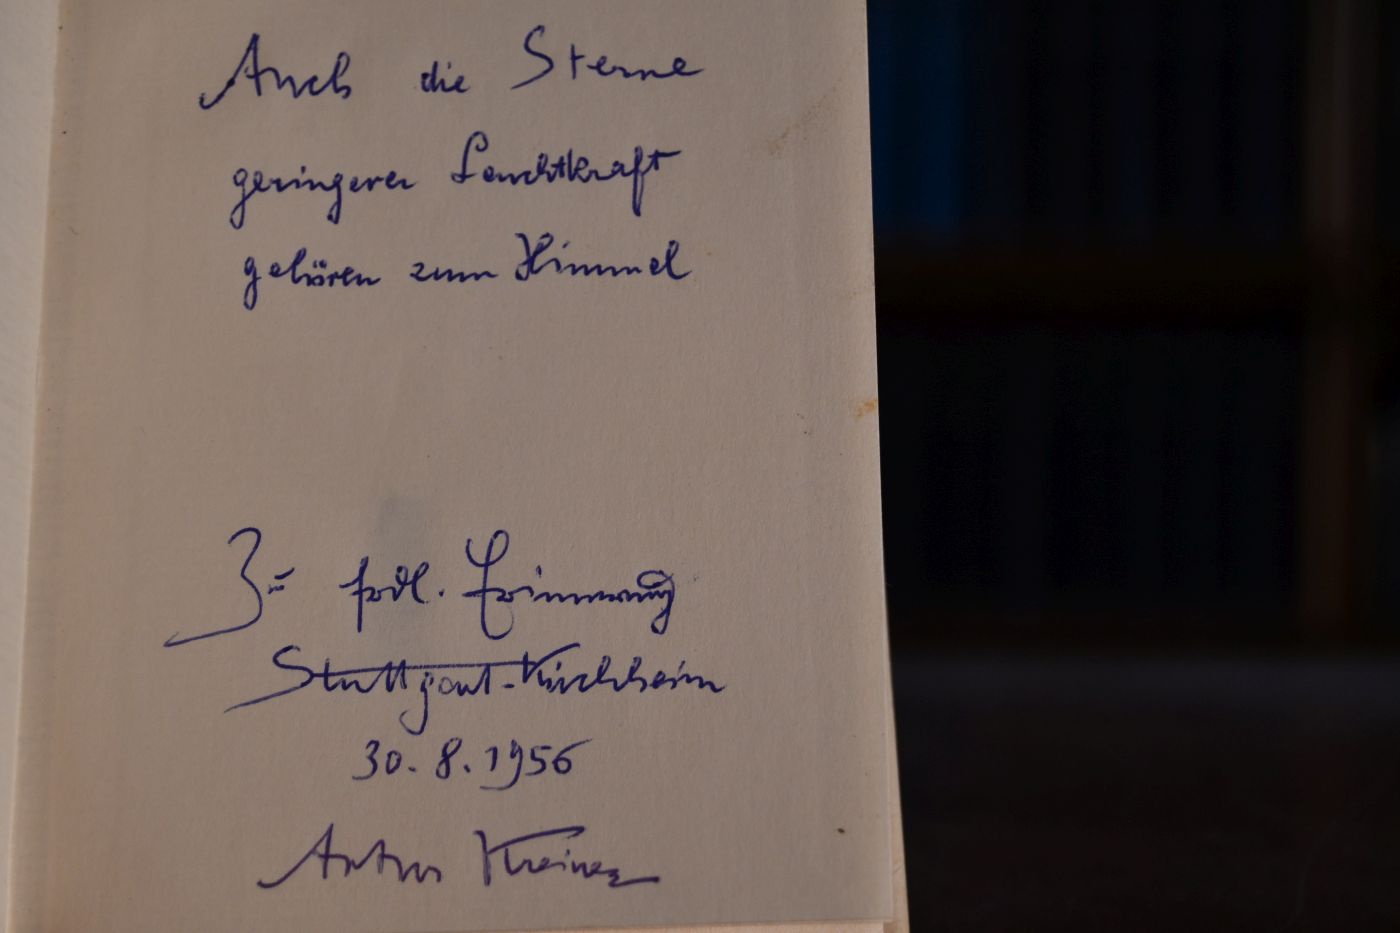 Auch die Sterne
geringerer Leuchtkraft
gehören zum Himmel
Zu frdl. Erinnerung
Stuttgart-Kirchheim
30.8.1956
Artur